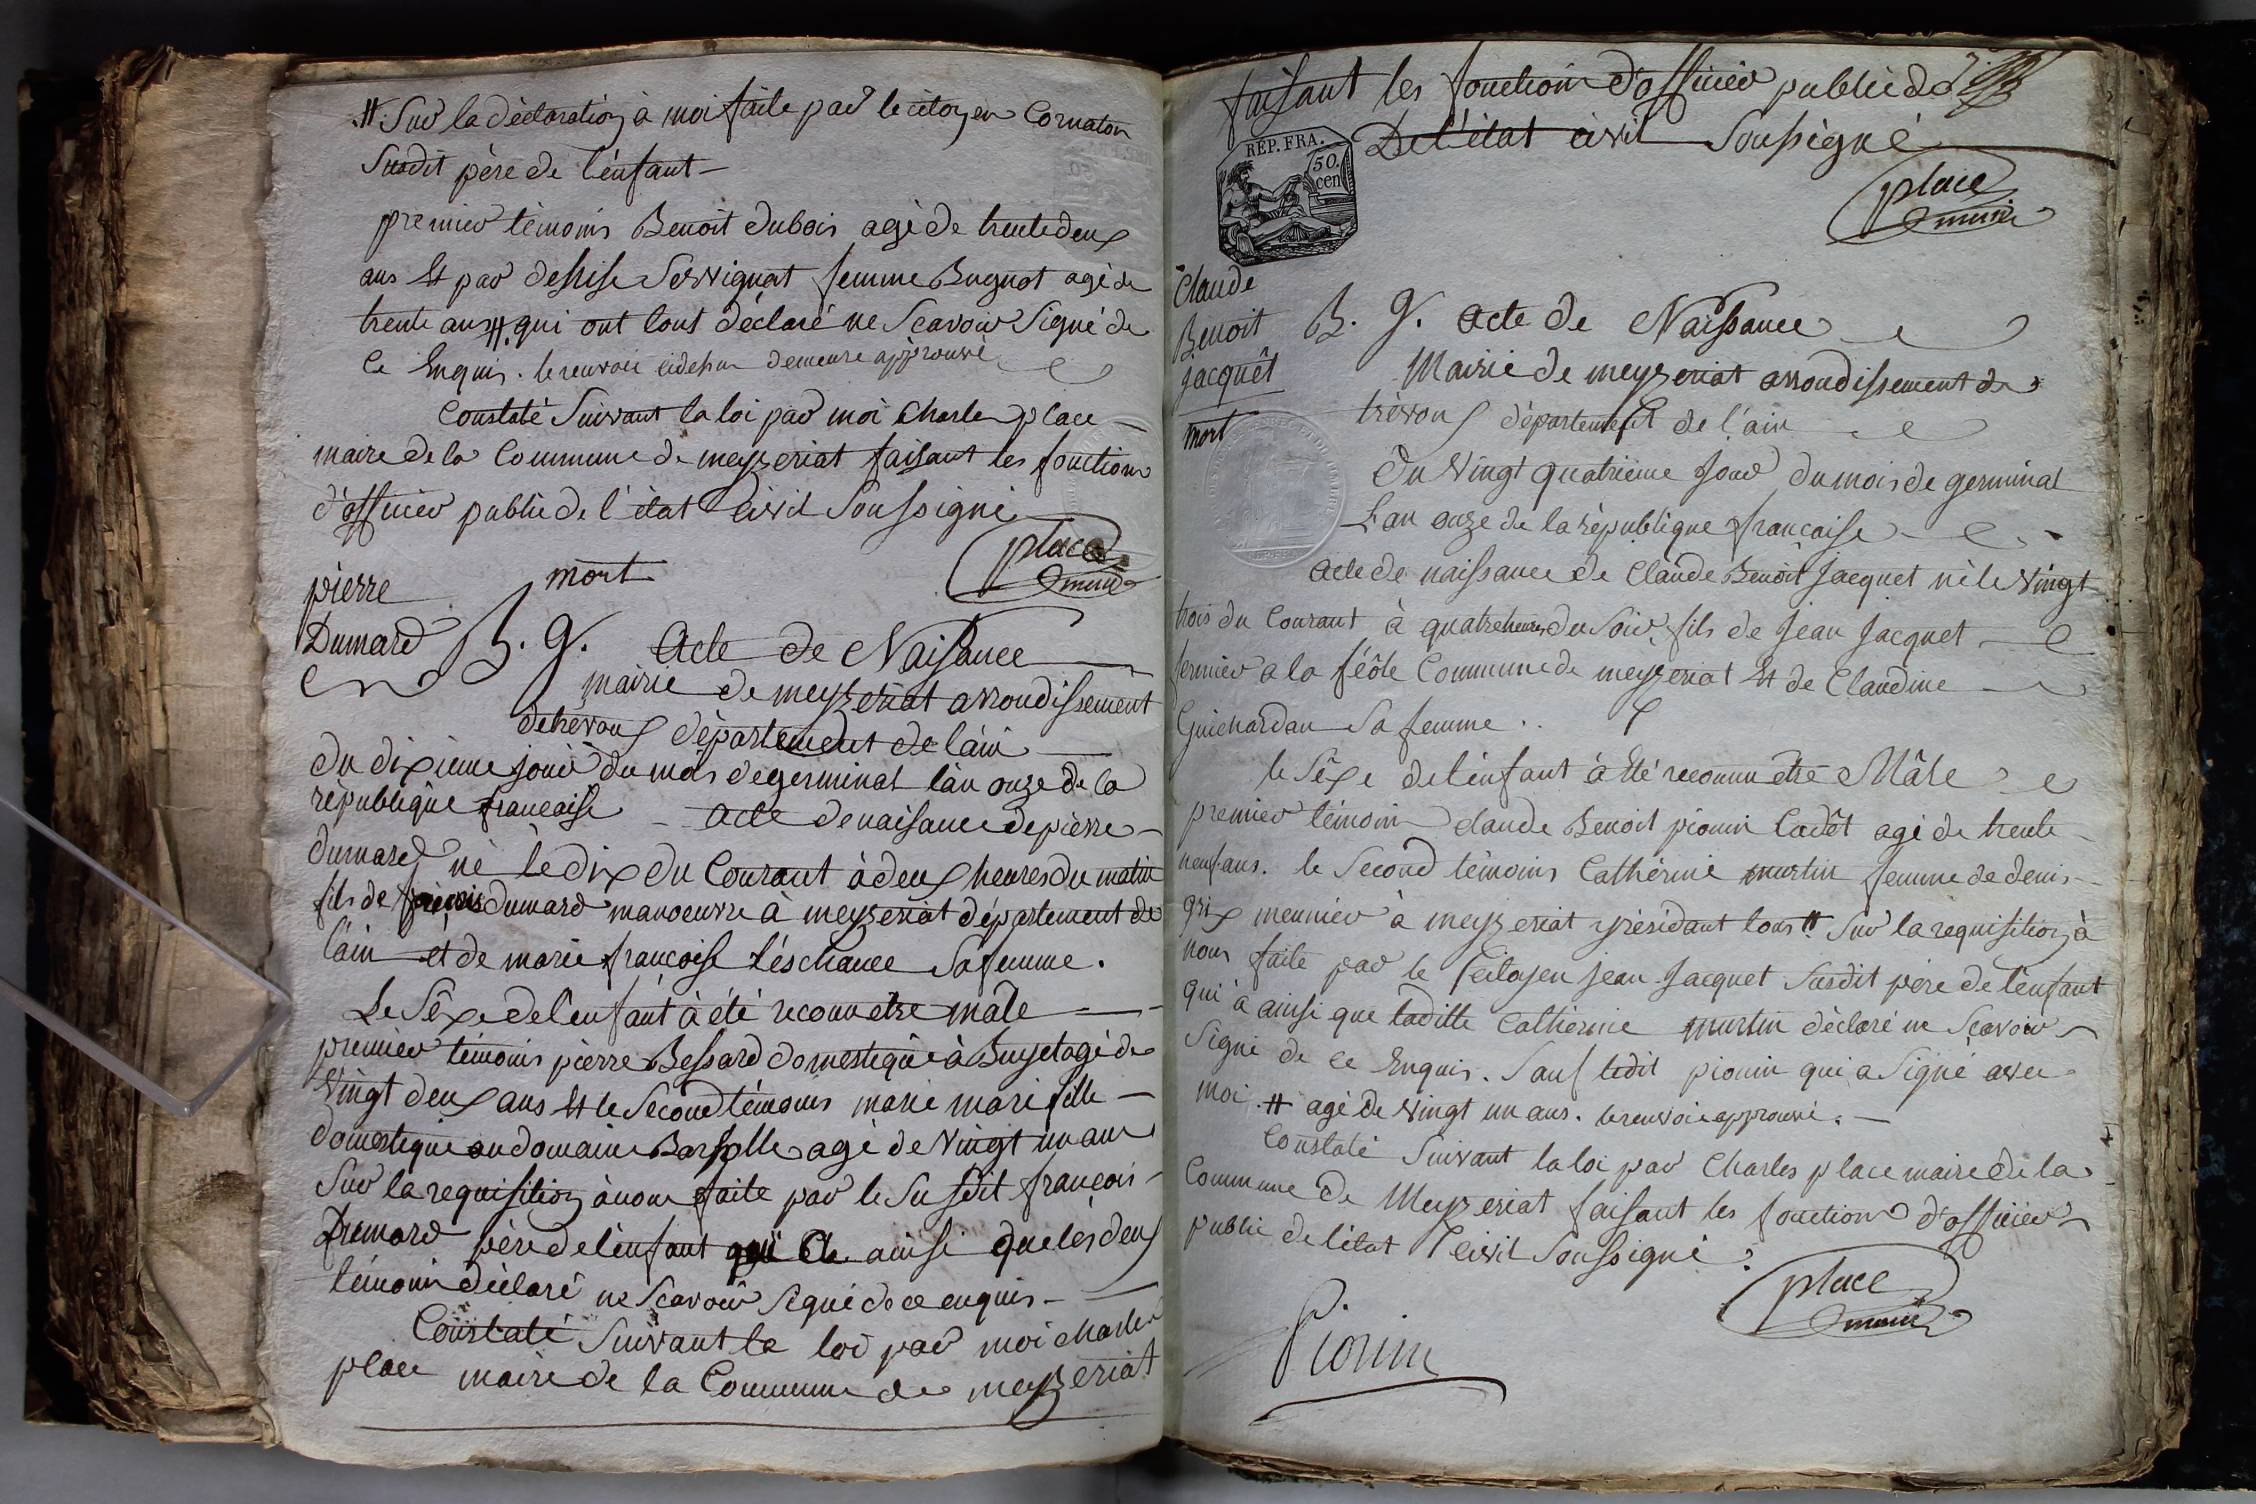 .#. Sur la déclaration à moi faite par le citoyen Cornaton
Susdit père de l'énfant —
premier témoins Benoit dubois agé de trente deux
ans Et par Servignat femme Bugnot agé de
trente ans #. qui ont tous déclaré ne Scavoir Signé de
Ce Enquis. le renvoie cidessus demeure approuvé
Constaté Suivant la loi par moi Charles place
maire de la Commune de meyzeriat faisant les fonctions
d'officier public de l'état Civil Soussigné
place
maire
mort
pierre
Dumard
B. g. Acte de Naissance
mairie de meyzeriat arrondissement
de trévoux département de l'ain
du dixieme jour du mois de germinal l'an onze de la
république française — Acte de naisance de pierre
dumard né le dix du Courant à deux heures du matin
fils de françois dumard manoeuvre à meyzeriat département de
l'ain et de marie françoise Léschance Sa femme.
Le Séxe de l'enfant à été reconu etre mâle
premier témoins pierre Bessard domestique à Buyset agé de
Vingt deux ans Et le Second témoins marie mari fille
domestique au domaine agé de Vingt un ans
Sur la requisition à nous faite par le Susdit françois
Dumard père de l'enfant qui a ainsi que les deux
témoins déclaré ne Scavoir Signé de ce enquis —
Constaté Suivant la loi par moi charles
place maire de la Commune de meyzeriat
faisant les fonction d'officier public de
De l'état civil Soussigné
REP. FRA.
50.
cen
place
maire
Claude
Benoit
jacquêt
mort
B. g. Acte de Naissance
Mairie de meyzeriat arrondissement de
trévoux département de l'ain
Du Vingt quatrième Jour du mois de germinal
L'an onze de la république française
Acte de naissance de Claude Benoit Jacquet né le Vingt
trois du Courant à quatre heures du Soir, fils de Jean Jacquet
fermier a la féôle Commune de meyzeriat Et de Claudine
Guichardan Sa femme . .
le Séxe de l'énfant à Eté reconnu etre Mâle
premier témoin claude Benoit pionin Cadêt agé de trente
neuf ans. le Second témoins Cathérine murtin femme de denis
grix meunier à meyzeriat y résidant tous #. Sur la requisition à
nous faite par le Citoyen jean Jacquet Susdit père de l'énfant
qui à ainsi que ladille Cathérine murtin déclaré ne Scavoir
Signé de ce Enquis. Sauf ledit pionin qui a Signé avec
moi. # agé de Vingt un ans. le renvoie approuvé. —
Constaté Suivant la loi par Charles place maire de la
Commune de Meyzeriat faisant les fonctions d'officier
public de l'état Civil Soussigné.
place
maire
Pionin